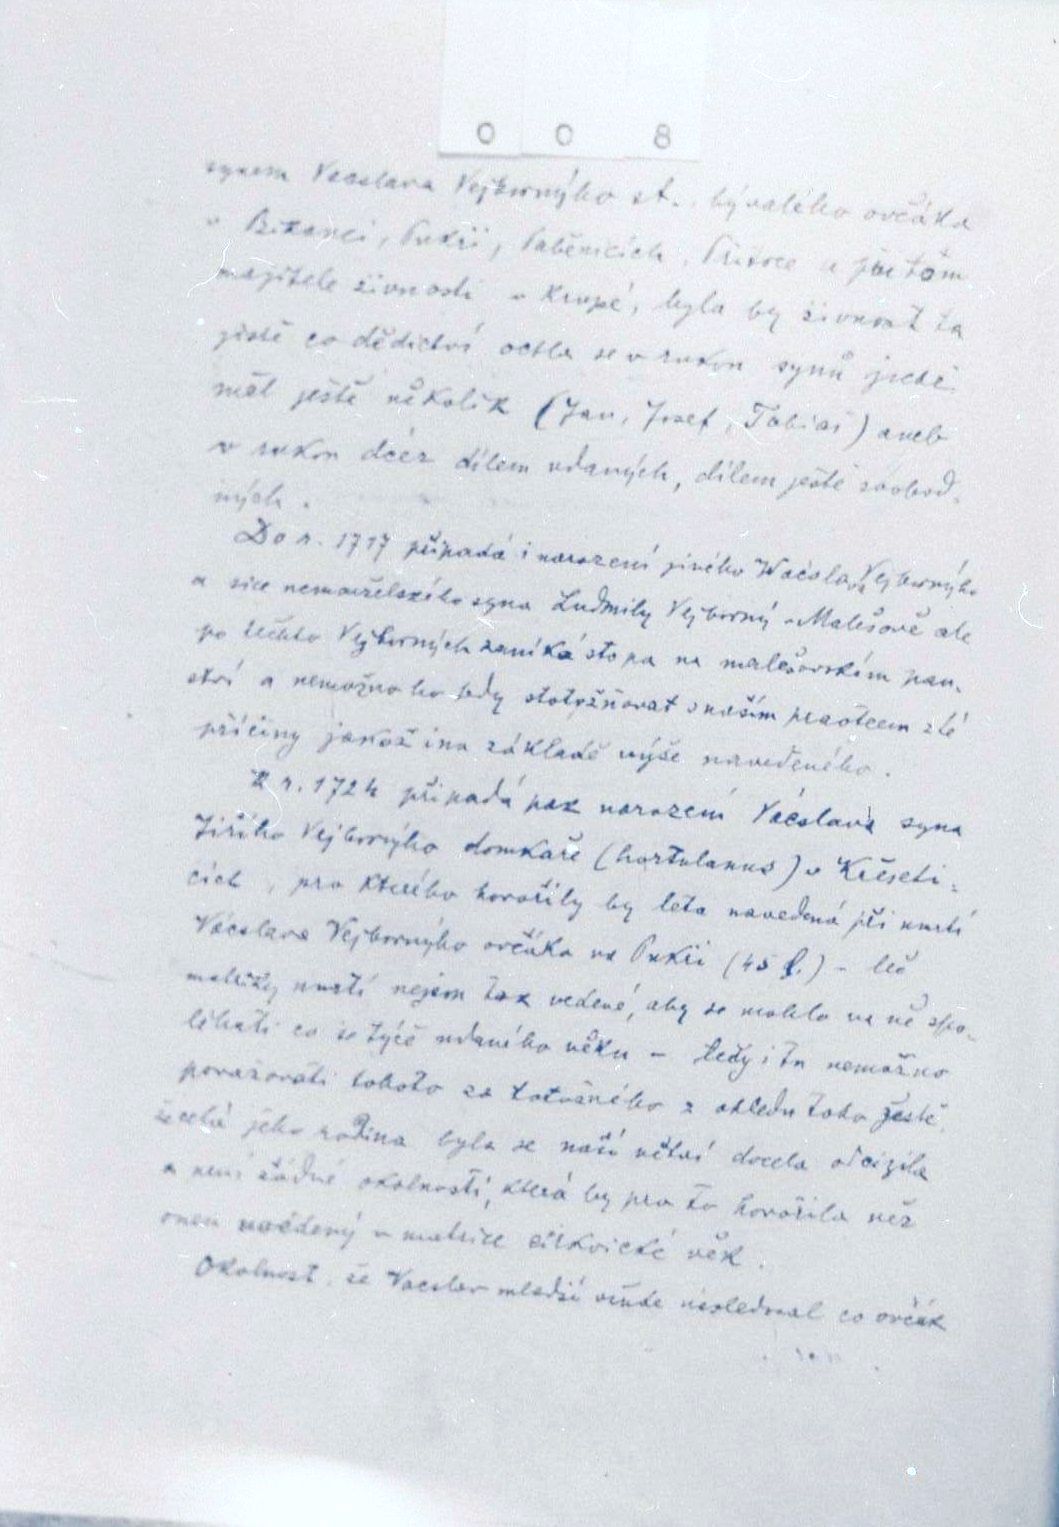 0 0 8
synem Vácslava Vejborného st., bývalého ovčáka
v Bikanci, Pukři, Paběnicích, Přítoce a při tom
majitele živnosti v Krupé, byla by živnost ta
jistě co dědictví octla se v rukou synů jichž
měl ještě několik (Jan, Josef, Tobiáš) aneb
v rukou dcer dílem vdaných, dílem ještě svobod-
ných.
Do r. 1717 připadá i narození jiného Vácslava Vejborného
a sice nemanželského syna Ludmily Vejborný v Malešově ale
po těchto Vejborných zaniká stopa na malešovském pan-
ství a nemožno ho tedy stotožňovat s naším praotcem z té
příčiny jakož i na základě výše navedeného.
K r. 1724 připadá pak narození Vácslava syna
Jiřího Vejborného domkaře (hortulanus) v Křeseti-
cích, pro kterého hovořily by léta navedená při úmrtí
Vácslava Vejborného ovčáka na Pukři (45 l.) – leč
matriky úmrtí nejsou tak vedené, aby se mohlo na ně spo-
léhati co se týče udaného věku – tedy i tu nemožno
považovati tohoto za totožného z ohledu toho ještě,
že celá jeho rodina byla se naší větvi docela odcizila
a není žádné okolnosti, která by pro to hovořila než
onen uvedený v matrice církvické věk.
Okolnost, že Vácslav mladší všude následoval co ovčák